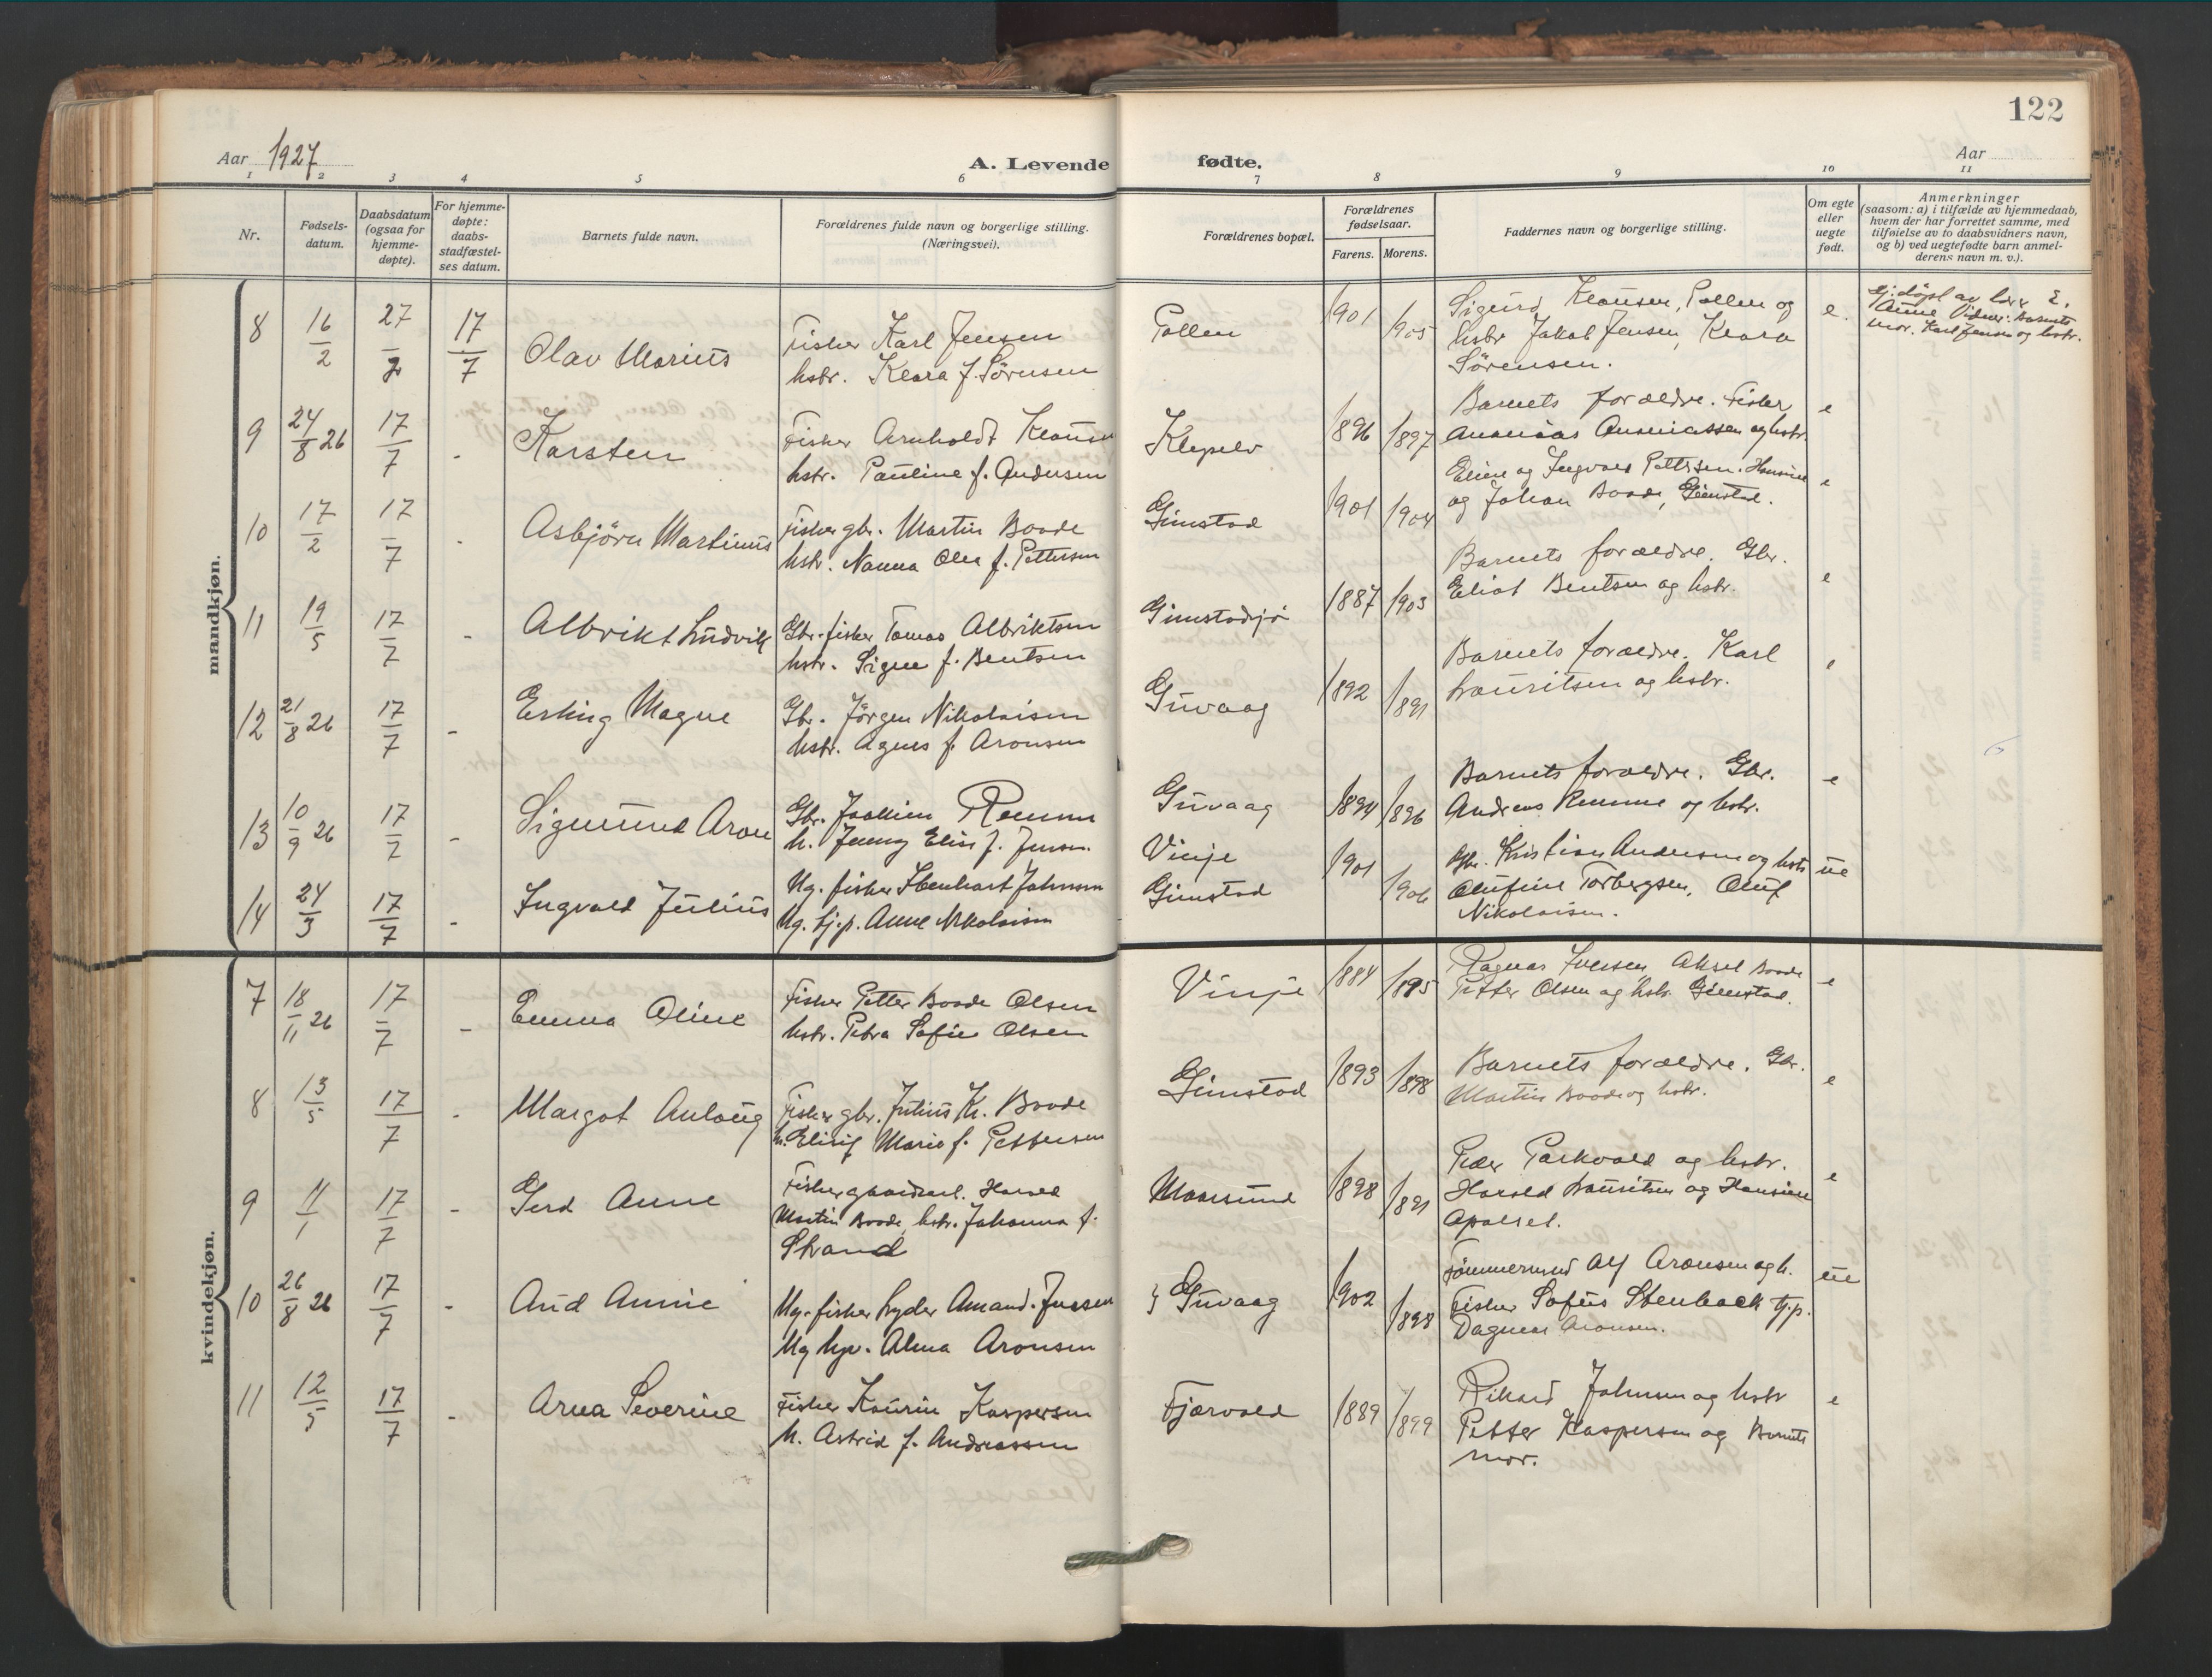 122
Aar 1927
A. Levende fødte.
Aar
1 2 3 4 5 6 7 8 9 10 11
Nr.
Fødsels-
datum.
Daabsdatum
(ogsaa for
hjemme-
døpte).
For hjemme-
døpte:
daabs-
stadfæstel-
ses datum.
Barnets fulde navn.
Forældrenes fulde navn og borgerlige stilling.
(Næringsvei).
Forældrenes bopæl.
Forældrenes
fødselsaar.
Farens. Morens.
Faddernes navn og borgerlige stilling.
Om egte
eller
uegte
født.
Anmerkninger
(saasom: a) i tilfælde av hjemmedaab,
hvem der har forrettet samme, med
tilføielse av to daabsvidners navn,
og b) ved uegtefødte barn anmel-
derens navn m. v.).
mandkjøn.
8 16/2 27/2 17/7 Olav Marius
Fisker Karl Jensen
hstr. Klara f. Sörensen
Pollen 1901 1905
Sigurd Klausen, Pollen og
hstr Jakob Jensen, Klara
Sörensen.
e.
Hj. døpt av
Anne Vidner: Barnets
mor. Karl Jensen og hstr.
9 24/8 26 17/7 - Karsten
Fisker Arnholdt Klausen
hstr. Pauline f. Andersen
Klepelv 1896 1897
Barnets forældre. Fisker
Ananias Ananiassen og hstr.
e
10 17/2 17/7 - Asbjörn Martinus
Fisker gbr. Martin Boode
hstr. Nanna Olea f. Pettersen
Gimstad 1901 1904
Eline og Ingvald Pettersen. Hansine
og Johan Boode, Gimstad.
e
11 19/5 17/7 - Albrikt Ludvik
Gbr. fisker Tomas Albriktsen
hstr. Signe f. Bentsen
Gimstadsjö 1887 1903
Barnets forældre. Gbr.
Eliot Bentsen og hstr.
e
12 21/8 26 17/7 - Erling Magne
Gbr. Jörgen Nikolaisen
hstr. Agnes f. Aronsen
Guvaag 1892 1891
Barnets forældre. Karl
Lauritsen og hstr.
e
13 10/9 26 17/7 - Sigmund Aron
Gbr. Joakim Remme
h. Jenny Elise f. Jensen.
Guvaag 1894 1896
Barnets forældre. Gbr.
Andreas Remme og hstr.
e
14 24/3 17/7 - Ingvald Julius
Ug. fisker Ebenhart Johnsen
Ug. tj.p. Anne Nikolaisen
Vinje
Gimstad
1901 1906
Gbr. Kristian Andersen og hstr
Olufine Torbergsen, Oluf
Nikolaisen.
ue
kvindekjøn.
7 18/11 26 17/7 - Emma Oline
Fisker Petter Boode Olsen
hstr. Petra Sofie Olsen
Vinje 1884 1895
Ragnar Iversen Aksel Boode
Petter Olsen og hstr. Gimstad.
e
8 13/5 17/7 - Margot Anlaug
Fisker gbr. Julius Kr. Boode
h. Elisif Marie f. Pettersen
Gimstad 1893 1898
Barnets forældre. Gbr.
Martin Boode og hstr.
e
9 11/1 17/7 - Gerd Anne
Fisker gaardsarb. Harald
Martin Boode, hstr. Johanna f.
Strand
Maarsund 1898 1891
Peder Parkvold og hstr.
Harald Lauritsen og Hansine
Apalset.
e
10 26/8 26 17/7 - Aud Annie
Ug. fisker Lyder Amand. Jensen
Ug hp. Alma Aronsen
} Guvaag 1902 1898
Tömmermand Alf Aronsen og h.
Fisker Sofus Stenback tj.p.
Dagmar Aronsen.
ue
11 12/5 17/7 - Arna Severine
Fisker Kaurin Kaspersen
h. Astrid f. Andreassen
Fjærvold 1889 1899
Rikard Johnsen og hstr
Petter Kaspersen og Barnets
mor.
e